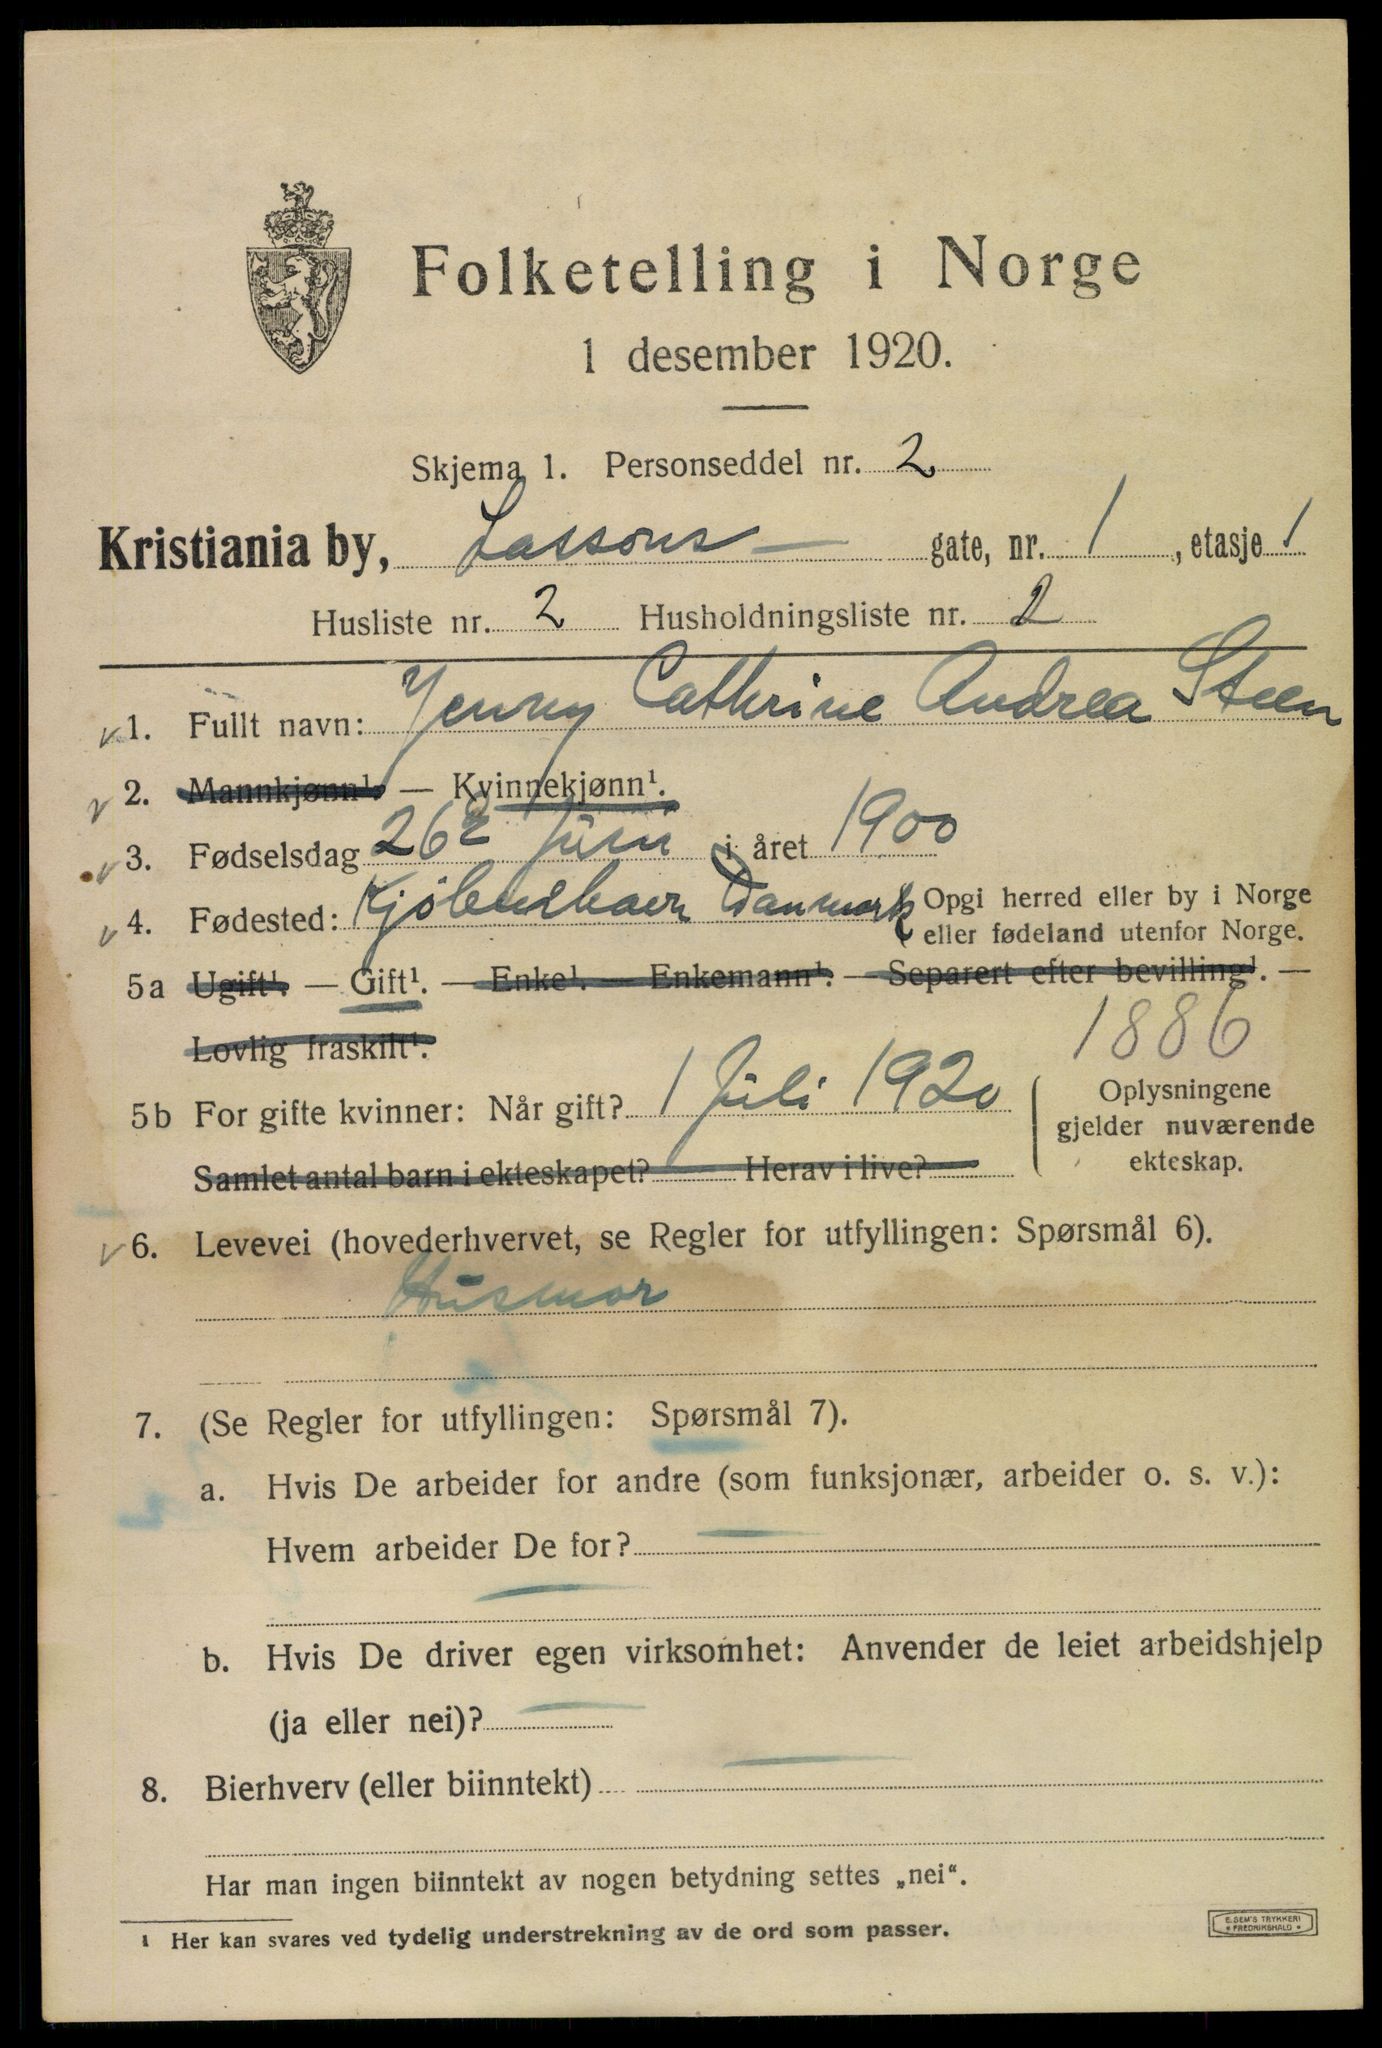 Folketelling i Norge
1 desember 1920.
Skjema 1. Personseddel nr. 2
Kristiania by, Lassons — gate, nr. 1, etasje 1
Husliste nr. 2 Husholdningsliste nr. 2
v 1. Fullt navn: Jenny Cathrine Andrea Steen
v 2. Mannkjønn¹. — Kvinnekjønn¹.
v 3. Fødselsdag 26 Juni i året 1900
v 4. Fødested: Kjöbenhavn Danmark { Opgi herred eller by i Norge
eller fødeland utenfor Norge.
5a Ugift¹. — Gift¹. — Enke¹. — Enkemann¹. — Separert efter bevilling¹. —
Lovlig fraskilt¹.
1886
5b For gifte kvinner: Når gift? 1 Juli 1920
Samlet antal barn i ekteskapet? Herav i live?
Oplysningene
gjelder nuværende
ekteskap.
v 6. Levevei (hovederhvervet, se Regler for utfyllingen: Spørsmål 6).
Husmor
7. (Se Regler for utfyllingen: Spørsmål 7).
a. Hvis De arbeider for andre (som funksjonær, arbeider o. s. v.):
Hvem arbeider De for? —
—
b. Hvis De driver egen virksomhet: Anvender de leiet arbeidshjelp
(ja eller nei)? —
8. Bierhverv (eller biinntekt) —
Har man ingen biinntekt av nogen betydning settes „nei“.
¹ Her kan svares ved tydelig understrekning av de ord som passer.
E. SEM'S TRYKKERI
* FREDRIKSHALD *